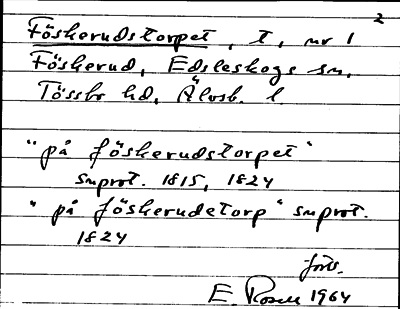 2
Föskerudstorpet, t, nr 1
Föskerud, Edsleskogs sn,
Tössbo hd, Älvsb. l.
"på föskerudstorpet"
smprot. 1815, 1824
"på föskerudetorp" smprot.
1824
forts.
E. Rosell 1964